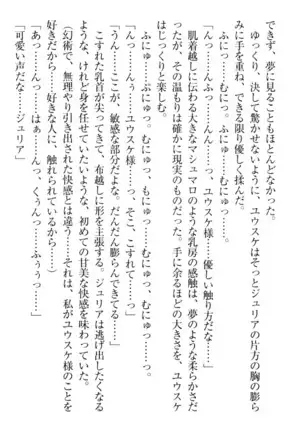 できず、夢に見ることもほとんどなかった。
ゆっくり、決して驚かせないように、ユウスケはそっとジュリアの片方の胸の膨ら
みに手を重ね、できる限り優しく揉んだ。
ふにゅっ……むにゅっ……ふにゅ……むにゅっ……。
「んっ……ユウスケ様……優しい触り方だな……」
肌着越しに伝わる大きなマシュマロのような乳房の感触は、夢のような柔らかさだ
ったが、その温もりは確かに現実のものだった。手に余るほどの大きさを、ユウスケ
はじっくりと楽しむ。
ふにゅっ……むにゅっ、もにゅっ……むにゅっ……。
「んっ……んっぅ……ユウスケ様……っ、そこ、こすれて……っ」
「うん……ここが、敏感な部分だよな。だんだん膨らんできてる……」
むにゅっ……ふにゅっ……むにゅっ……っ。
こすれた乳首が立ってきて、布越しに形を主張する。ジュリアは逃げ出したくなる
ような、けれど身を任せていたいような、初めての甘美な快感を味わっていた。
（幻術で、無理やり引き出された快感とは違う……それは、私がユウスケ様のことを
好きだから……好きな人に、触れられているから……）
「あっ……んっ……はぁ……んっ、くぅんっ……ふぅっ……」
「可愛い声だな……ジュリア」